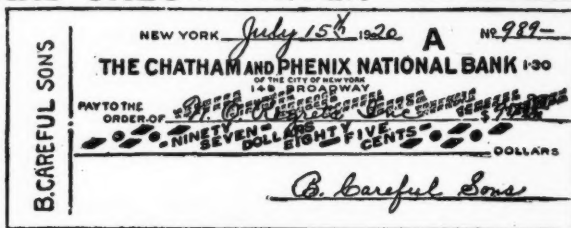 NEW YORK July 15th 1920 A No 989-
THE CHATHAM AND PHENIX NATIONAL BANK 1-30
OF THE CITY OF NEW YORK
149 BROADWAY
PAY TO THE
ORDER OF N. O. Regrets Inc. $
NINETY SEVEN DOLLARS EIGHTY FIVE CENTS
DOLLARS
B. Careful Sons
B. CAREFUL SONS